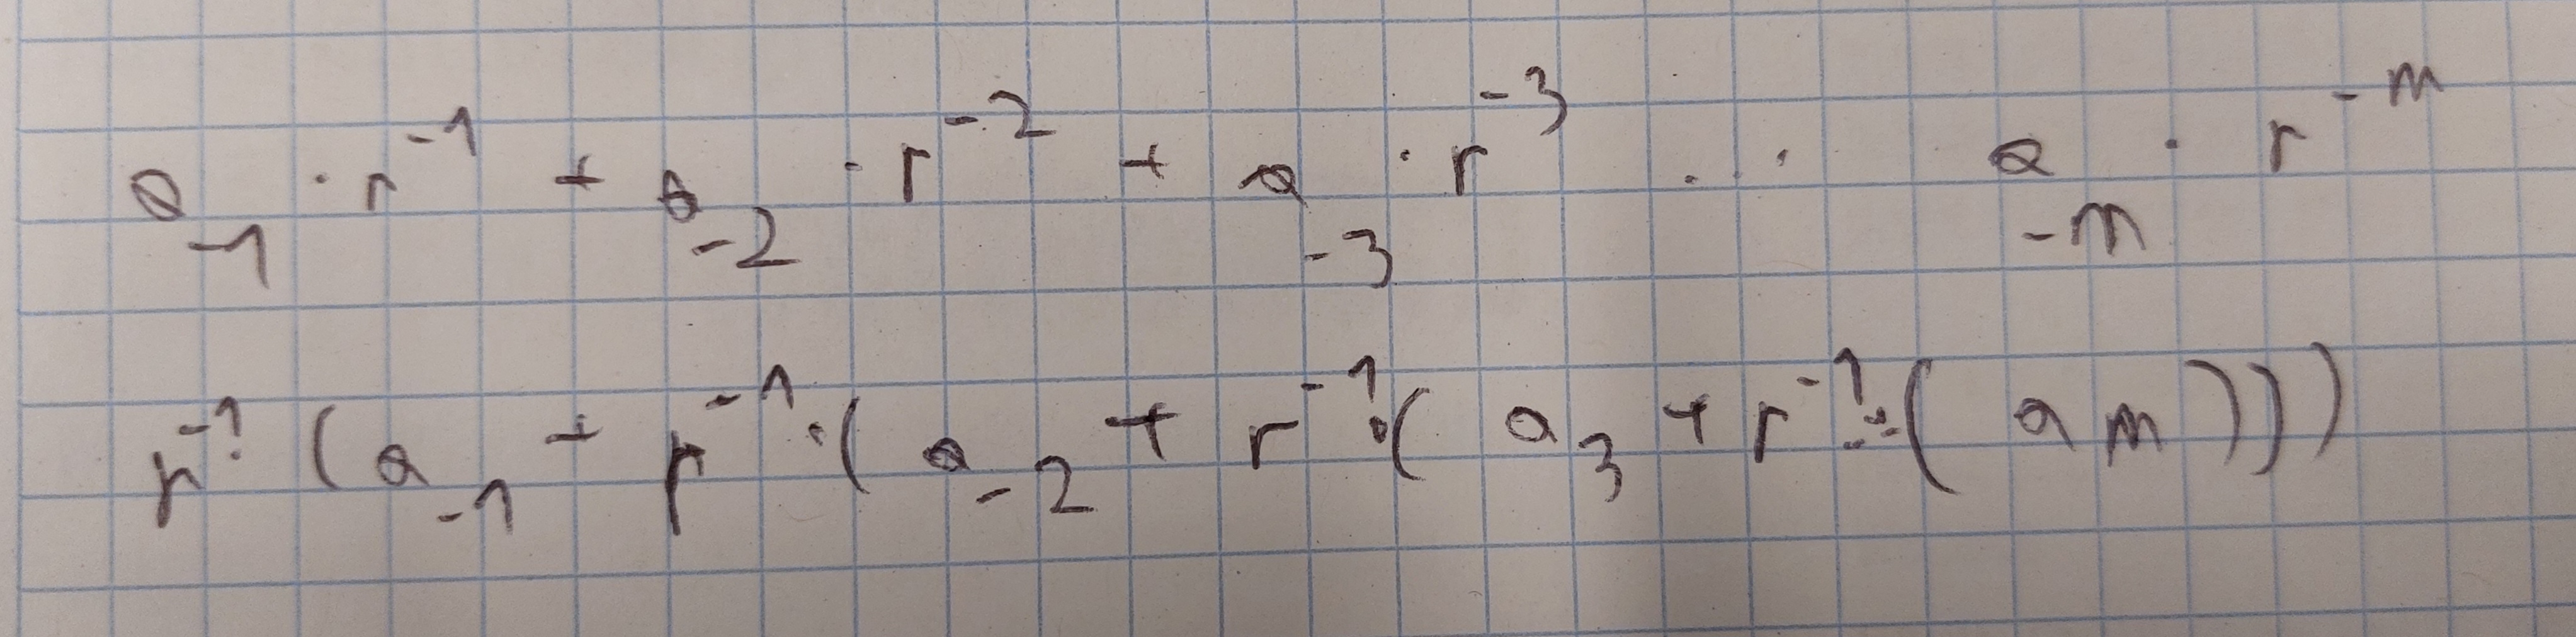 a₋₁ · r⁻¹ + a₋₂ · r⁻² + a₋₃ · r⁻³ ... a₋ₘ · r⁻ᵐ
r⁻¹·(a₋₁ + r⁻¹·(a₋₂ + r⁻¹·(a₃ + r⁻¹...(am))))